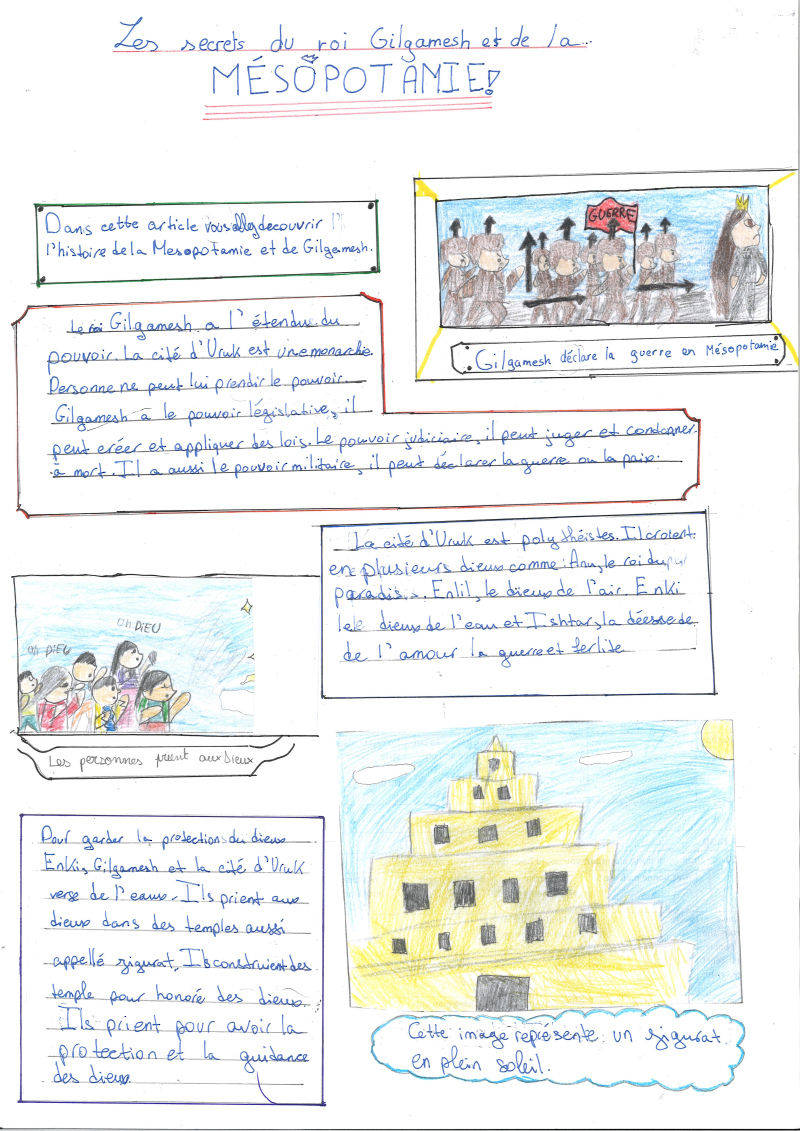 Les secrets du roi Gilgamesh et de la...
MÉSOPOTAMIE!
Dans cette article vous allez decouvrir l'
l'histoire de la Mesopotamie et de Gilgamesh.
GUERRE
Gilgamesh déclare la guerre en Mésopotamie
Le roi Gilgamesh a l'étendue du
pouvoir. La cité d'Uruk est une monarchie.
Personne ne peut lui prendre le pouvoir.
Gilgamesh a le pouvoir législative, il
peut créer et appliquer des lois. Le pouvoir judiciaire, il peut juger et condamner
à mort. Il a aussi le pouvoir militaire, il peut déclarer la guerre ou la paix.
La cité d'Uruk est polythéistes. Il croient
en plusieurs dieux comme: Anu, le roi du
paradis. Enlil, le dieux de l'air. Enki
le dieux de l'eau et Ishtar, la déesse de
de l'amour la guerre et ferlite
oh DIEU
oh DIEU
Les personnes prient aux Dieux
Pour garder la protection du dieux
Enki, Gilgamesh et la cité d'Uruk
verse de l'eaux. Ils prient aux
dieux dans des temples aussi
appellé zigurat. Ils construient des
temple pour honoré des dieux.
Ils prient pour avoir la
protection et la guidance
des dieux.
Cette image représente un zigurat
en plein soleil.